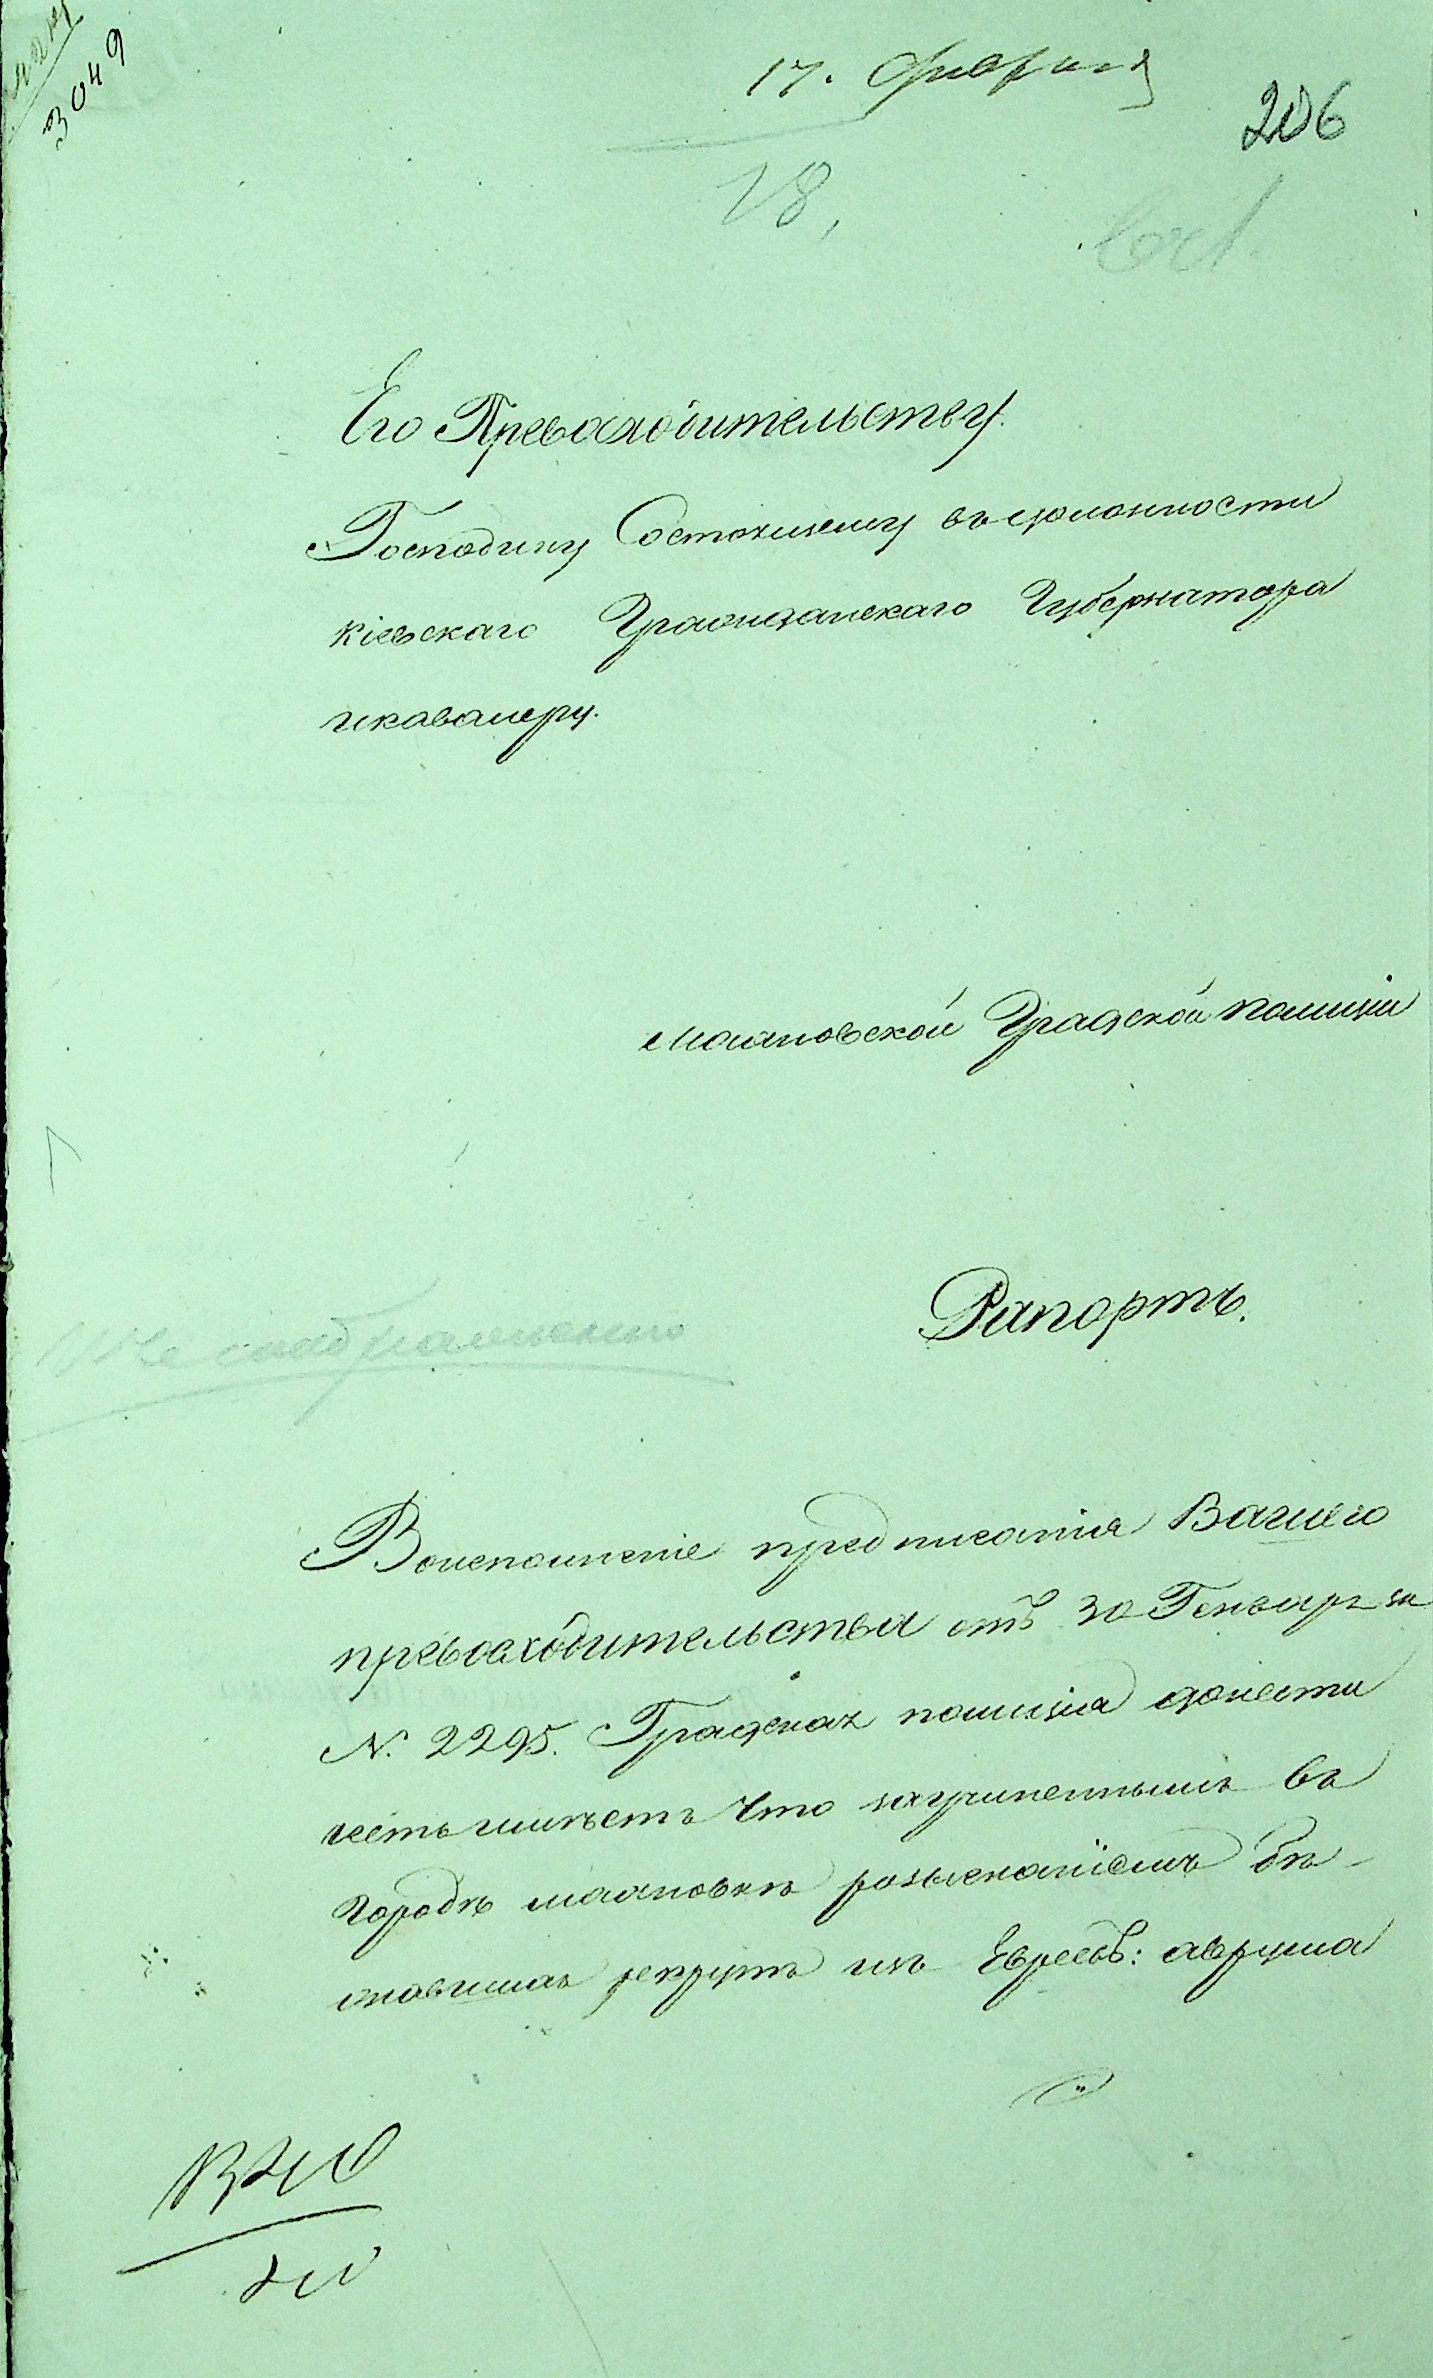 3049
17. Февраля
206
18,
Его Превосходительству.
Господину Состоящему въ должности
Кіевскаго Гражданскаго Губернатора
и кавалеру.
Градской полиціи
Рапортъ.
Во исполненіе предписанія Вашего
превосходительства отъ 30 Генваря за
N. 2295. Градская полиція донести
честь имѣетъ что заучиненнымъ въ
городѣ розысканіемъ бѣ-
жавшихъ рекрутъ изъ Евреевъ: Аврума